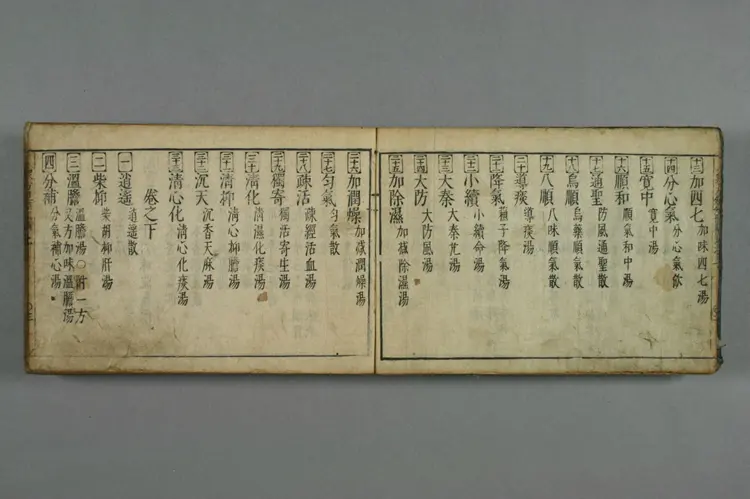 十三 加四七 加味四七湯
十四 分心氣 分心氣飲
十五 寛中 寛中湯
十六 順和 順氣和中湯
十七 通聖 防風通聖散
十八 烏順 烏藥順氣散
十九 八順 八味順氣散
二十 導痰 導痰湯
二十一 降氣 蘓子降氣湯
二十二 小續 小續命湯
二十三 大秦 大秦艽湯
二十四 大防 大防風湯
二十五 加除濕 加減除濕湯
二十六 加潤燥 加減潤燥湯
二十七 匀氣 匀氣散
二十八 疎活 疎經活血湯
二十九 獨寄 獨活寄生湯
三十 清化 清濕化痰湯
三十一 清抑 清心抑膽湯
三十二 沉天 沉香天麻湯
三十三 清心化 清心化痰湯
卷之下
一 逍遥 逍遥散
二 柴抑 柴胡抑肝湯
三 温膽 温膽湯〇附一方 又方加味温膽湯
四 分補 分氣補心湯